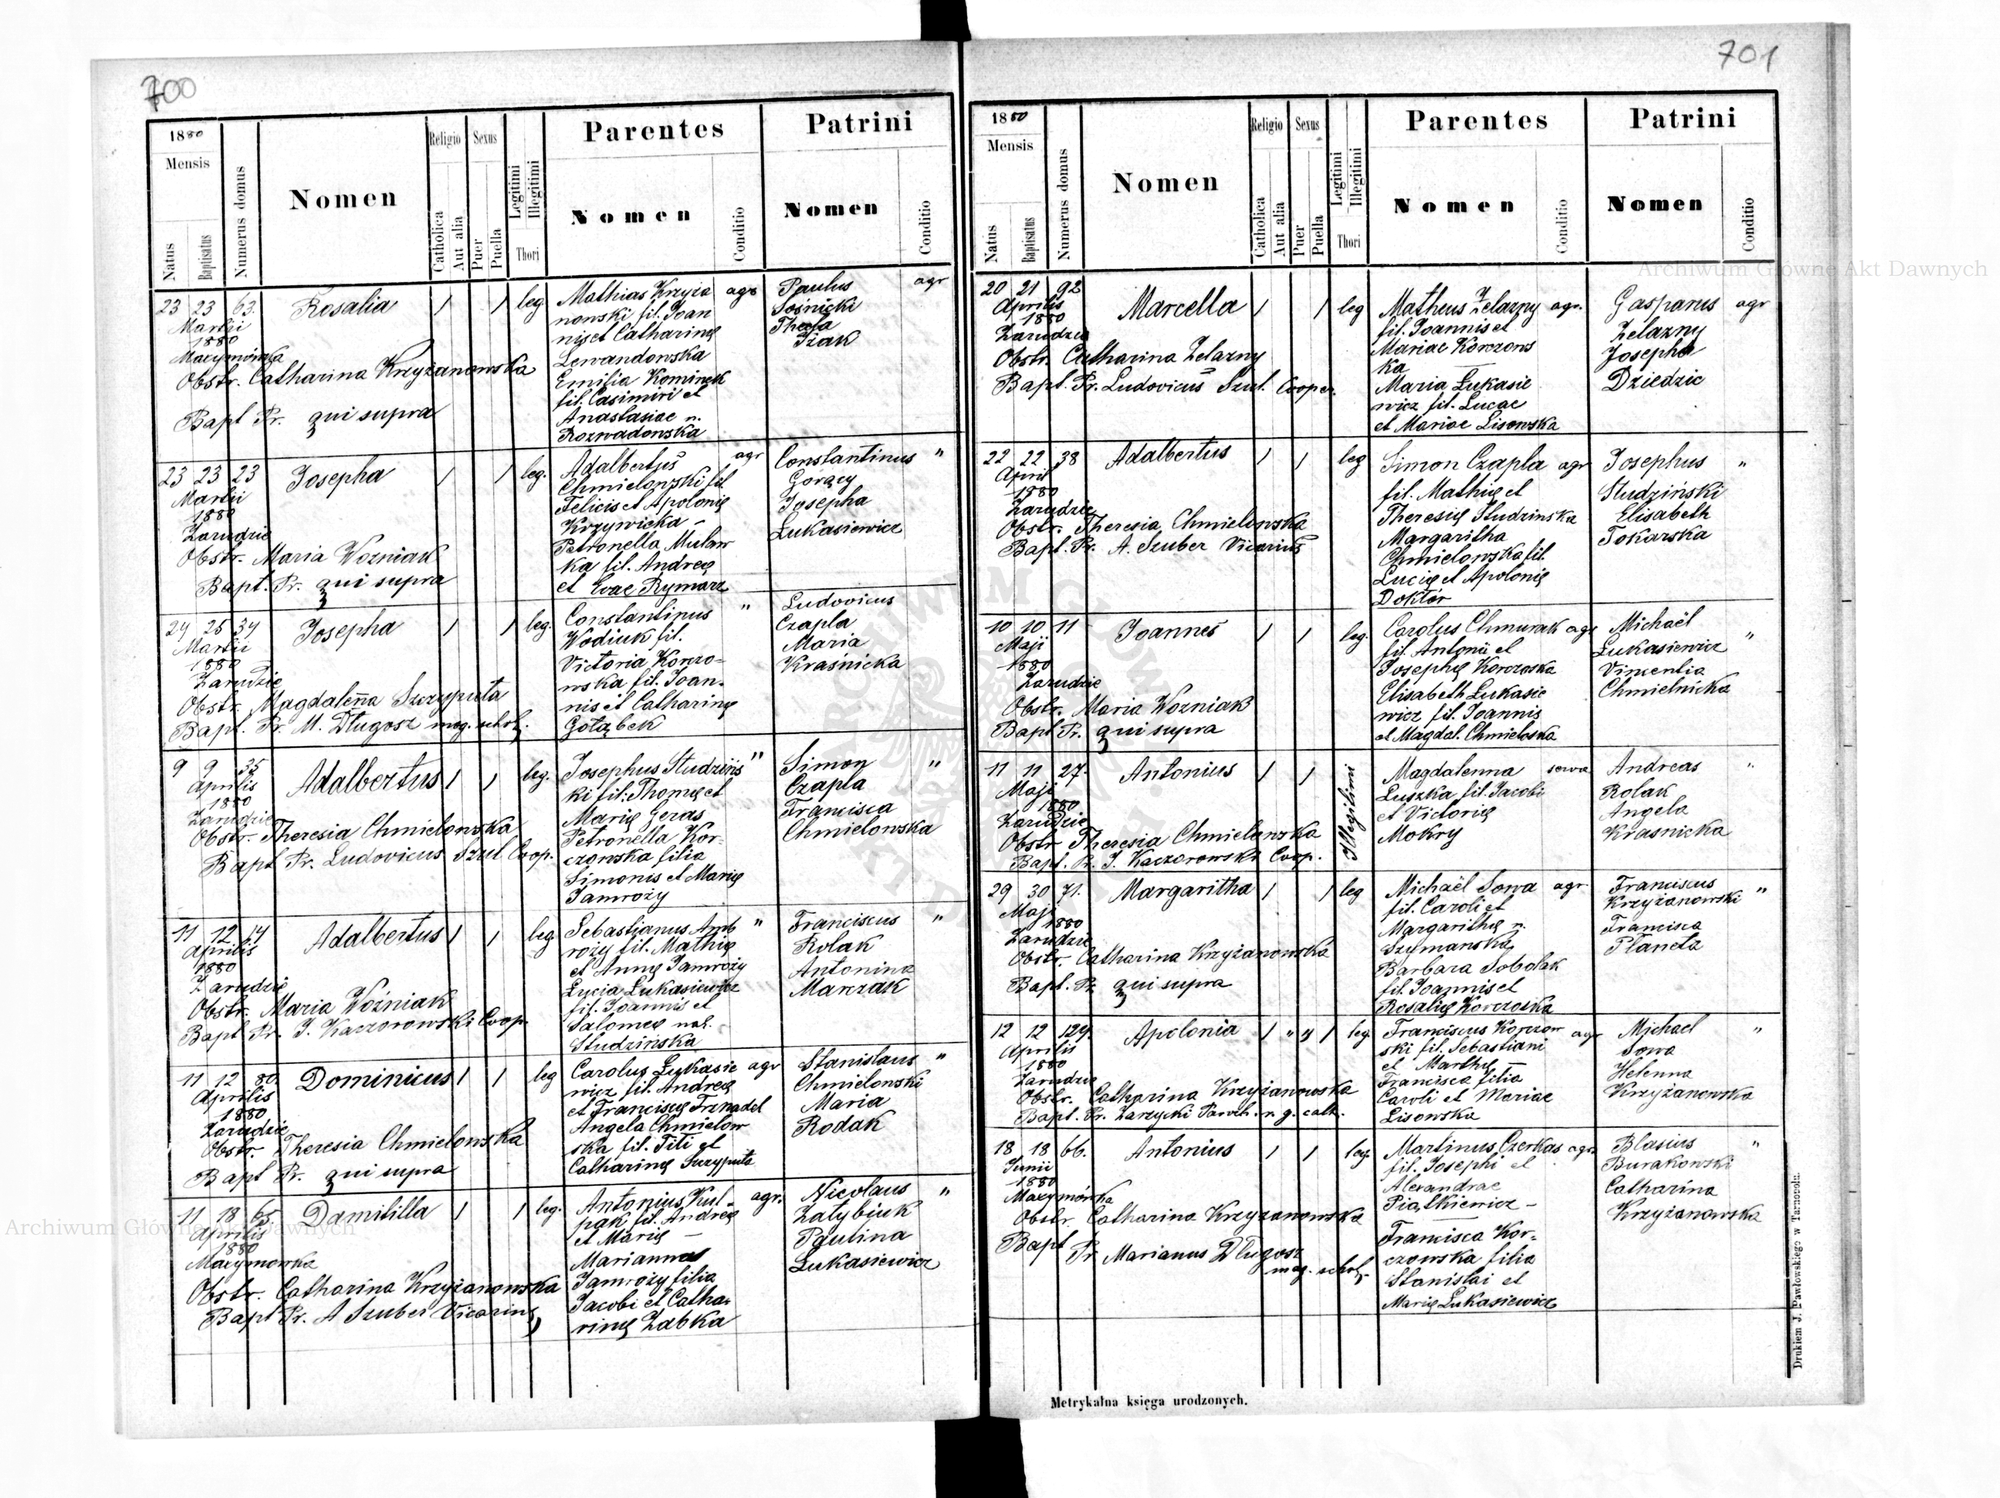 700
1880
Mensis
Natus
Baptisatus
Numerus domus
Nomen
Religio
Catholica
Aut alia
Sexus
Puer
Puella
Legitimi
Illegitimi
Thori
Parentes
Nomen
Conditio
Patrini
Nomen
Conditio
23 23 63. Rosalia 1 1 leg
Martii
1880
Maxymówka
Obstr. Catharina Krzyżanowska
Bapt Pr. qui supra
Mathias Krzyża agr
nowski fil. Joan
nis et Catharinę
Lewandowska
Emilia Kominek
fil. Casimiri et
Anastasiae n.
Rozwadowska
Paulus agr
Sośnicki
Thecla
Żiak
23 23 23 Josepha 1 1 leg.
Martii
1880
Zarudzie
Obstr. Maria Wozniak
Bapt. Pr. qui supra
Adalbertus agr
Chmielowski fil
Felicis et Apolonię
Krzywicka –
Petronella Mular
ka fil. Andreę
et Evae Rymarz
Constantinus "
Gorący
Josepha
Lukasiewicz
24 25 34 Josepha 1 1 leg.
Martii
1880
Zarudzie
Obstr. Magdalena Szczyputa
Bapt. Pr. M. Długosz mag. schol.
Constantinus "
Wodiuk fil.
Victoria Korczo-
wska fil. Joan-
nis et Catharinę
Gołąbek
Ludovicus
Czapla
Maria
Krasnicka
9 9 35 Adalbertus 1 1 leg.
Aprilis
1880
Zarudzie
Obstr. Theresia Chmielowska
Bapt Pr. Ludovicus Szul Coop.
Josephus Studzińs "
ki fil. Thomę et
Marię Geras
Petronella Kor-
czowska filia
Simonis et Marię
Jamroży
Simon "
Czapla
Francisca
Chmielowska
11 12 14 Adalbertus 1 1 leg
Aprilis
1880
Zarudzie
Obstr. Maria Woźniak
Bapt Pr. J. Kaczorowski Coop.
Sebastianus Amb "
roży fil. Mathię
et Annę Jamroży
Lucia Lukasiewicz
fil. Joannis et
Salomeę nat.
Studzińska
Franciscus "
Rolak
Antonina
Marzak
11 12 80. Dominicus 1 1 leg
Aprilis
1880
Zarudzie
Obstr. Theresia Chmielowska
Bapt Pr. qui supra
Carolus Lukasie agr
wicz fil. Andreę
et Franciscę Trznadel
Angela Chmielow
ska fil. Titi et
Catharinę Szczyputa
Stanislaus "
Chmielowski
Maria
Rodak
11 18 65 Damitilla 1 1 leg.
Aprilis
1880
Maxymowka
Obstr. Catharina Krzyżanowska
Bapt Pr. A Szuber Vicarius
Antonius Kul- agr.
pak fil. Andreę
et Marię –
Marianna
Jamroży filia
Jacobi et Catha-
rinę Żabka
Nicolaus "
Załybiuk
Paulina
Lukasiewicz
701
1880
Mensis
Natus
Baptisatus
Numerus domus
Nomen
Religio
Catholica
Aut alia
Sexus
Puer
Puella
Legitimi
Illegitimi
Thori
Parentes
Nomen
Conditio
Patrini
Nomen
Conditio
20 21 92 Marcella 1 1 leg
Aprilis
1880
Zarudzie
Obstr. Catharina Żelazny
Bapt. Pr. Ludovicus Szul Cooper.
Matheus Żelazny agr.
fil. Joannis et
Mariae Korczows
ka
Maria Lukasie
wicz fil. Lucae
et Mariae Lisowska
Gasparus agr
Żelazny
Josepha
Dziedzic
22 22 38 Adalbertus 1 1 leg
April
1880
Zarudzie
Obstr. Theresia Chmielowska
Bapt. Pr. A. Szuber Vicarius
Simon Czapla agr
fil. Mathię et
Theresię Studzinska
Margaritha
Chmielowska fil.
Lucię et Apolonię
Doktór
Josephus "
Studziński
Elisabeth
Tokarska
10 10 11 Joannes 1 1 leg.
Maji
1880
Zarudzie
Obstr. Maria Wozniak
Bapt Pr. qui supra
Carolus Chmurak agr
fil. Antonii et
Josephę Korczoska
Elisabeth Lukasie
wicz fil. Joannis
et Magdal. Chmieloska
Michaël "
Lukasiewicz
Vincentia
Chmielnicka
11 11 27. Antonius 1 1 Illegitimi
Maji
1880
Zarudzie
Obstr Theresia Chmielowska
Bapt. Pr. J. Kaczorowski Coop.
Magdalenna serva
Luszka fil. Jacobi
et Victorię
Mokry
Andreas "
Rolak
Angela
Krasnicka
29 30 71. Margaritha 1 1 leg
Maji
1880
Zarudzie
Obstr. Catharina Krzyżanowska
Bapt. Pr. qui supra
Michaël Sowa agr.
fil. Caroli et
Margarithę n.
Szymanska
Barbara Sobolak
fil Joannis et
Rosalię Korczoska
Franciscus
Krzyżanowski "
Francisca
Płaneta
12 12 129. Apolonia 1 " " 1 leg.
Aprilis
1880
Zarudzie
Obstr. Catharina Krzyżanowska
Bapt. Pr. Zarzycki Paroch. r. g. cath.
Franciscus Korczow agr
ski fil. Sebastiani
et Marthę
Francisca filia
Caroli et Mariae
Lisowska
Michael "
Sowa
Helenna
Krzyżanowska
18 18 66. Antonius 1 1 leg.
Junii
1880
Maxymówka
Obstr. Catharina Krzyzanowska
Bapt Pr Marianus Długosz
mag. schol.
Martinus Czerkas agr.
fil. Josephi et
Alexandrae
Piątkiewicz –
Francisca Kor-
czowska filia
Stanislai et
Marię Lukasiewicz
Blasius "
Burakowski
Catharina
Krzyżanowska
Metrykalna księga urodzonych.
Drukiem J. Pawłowskiego w Tarnopolu.
Archiwum Główne Akt Dawnych
Archiwum Główne Akt Dawnych